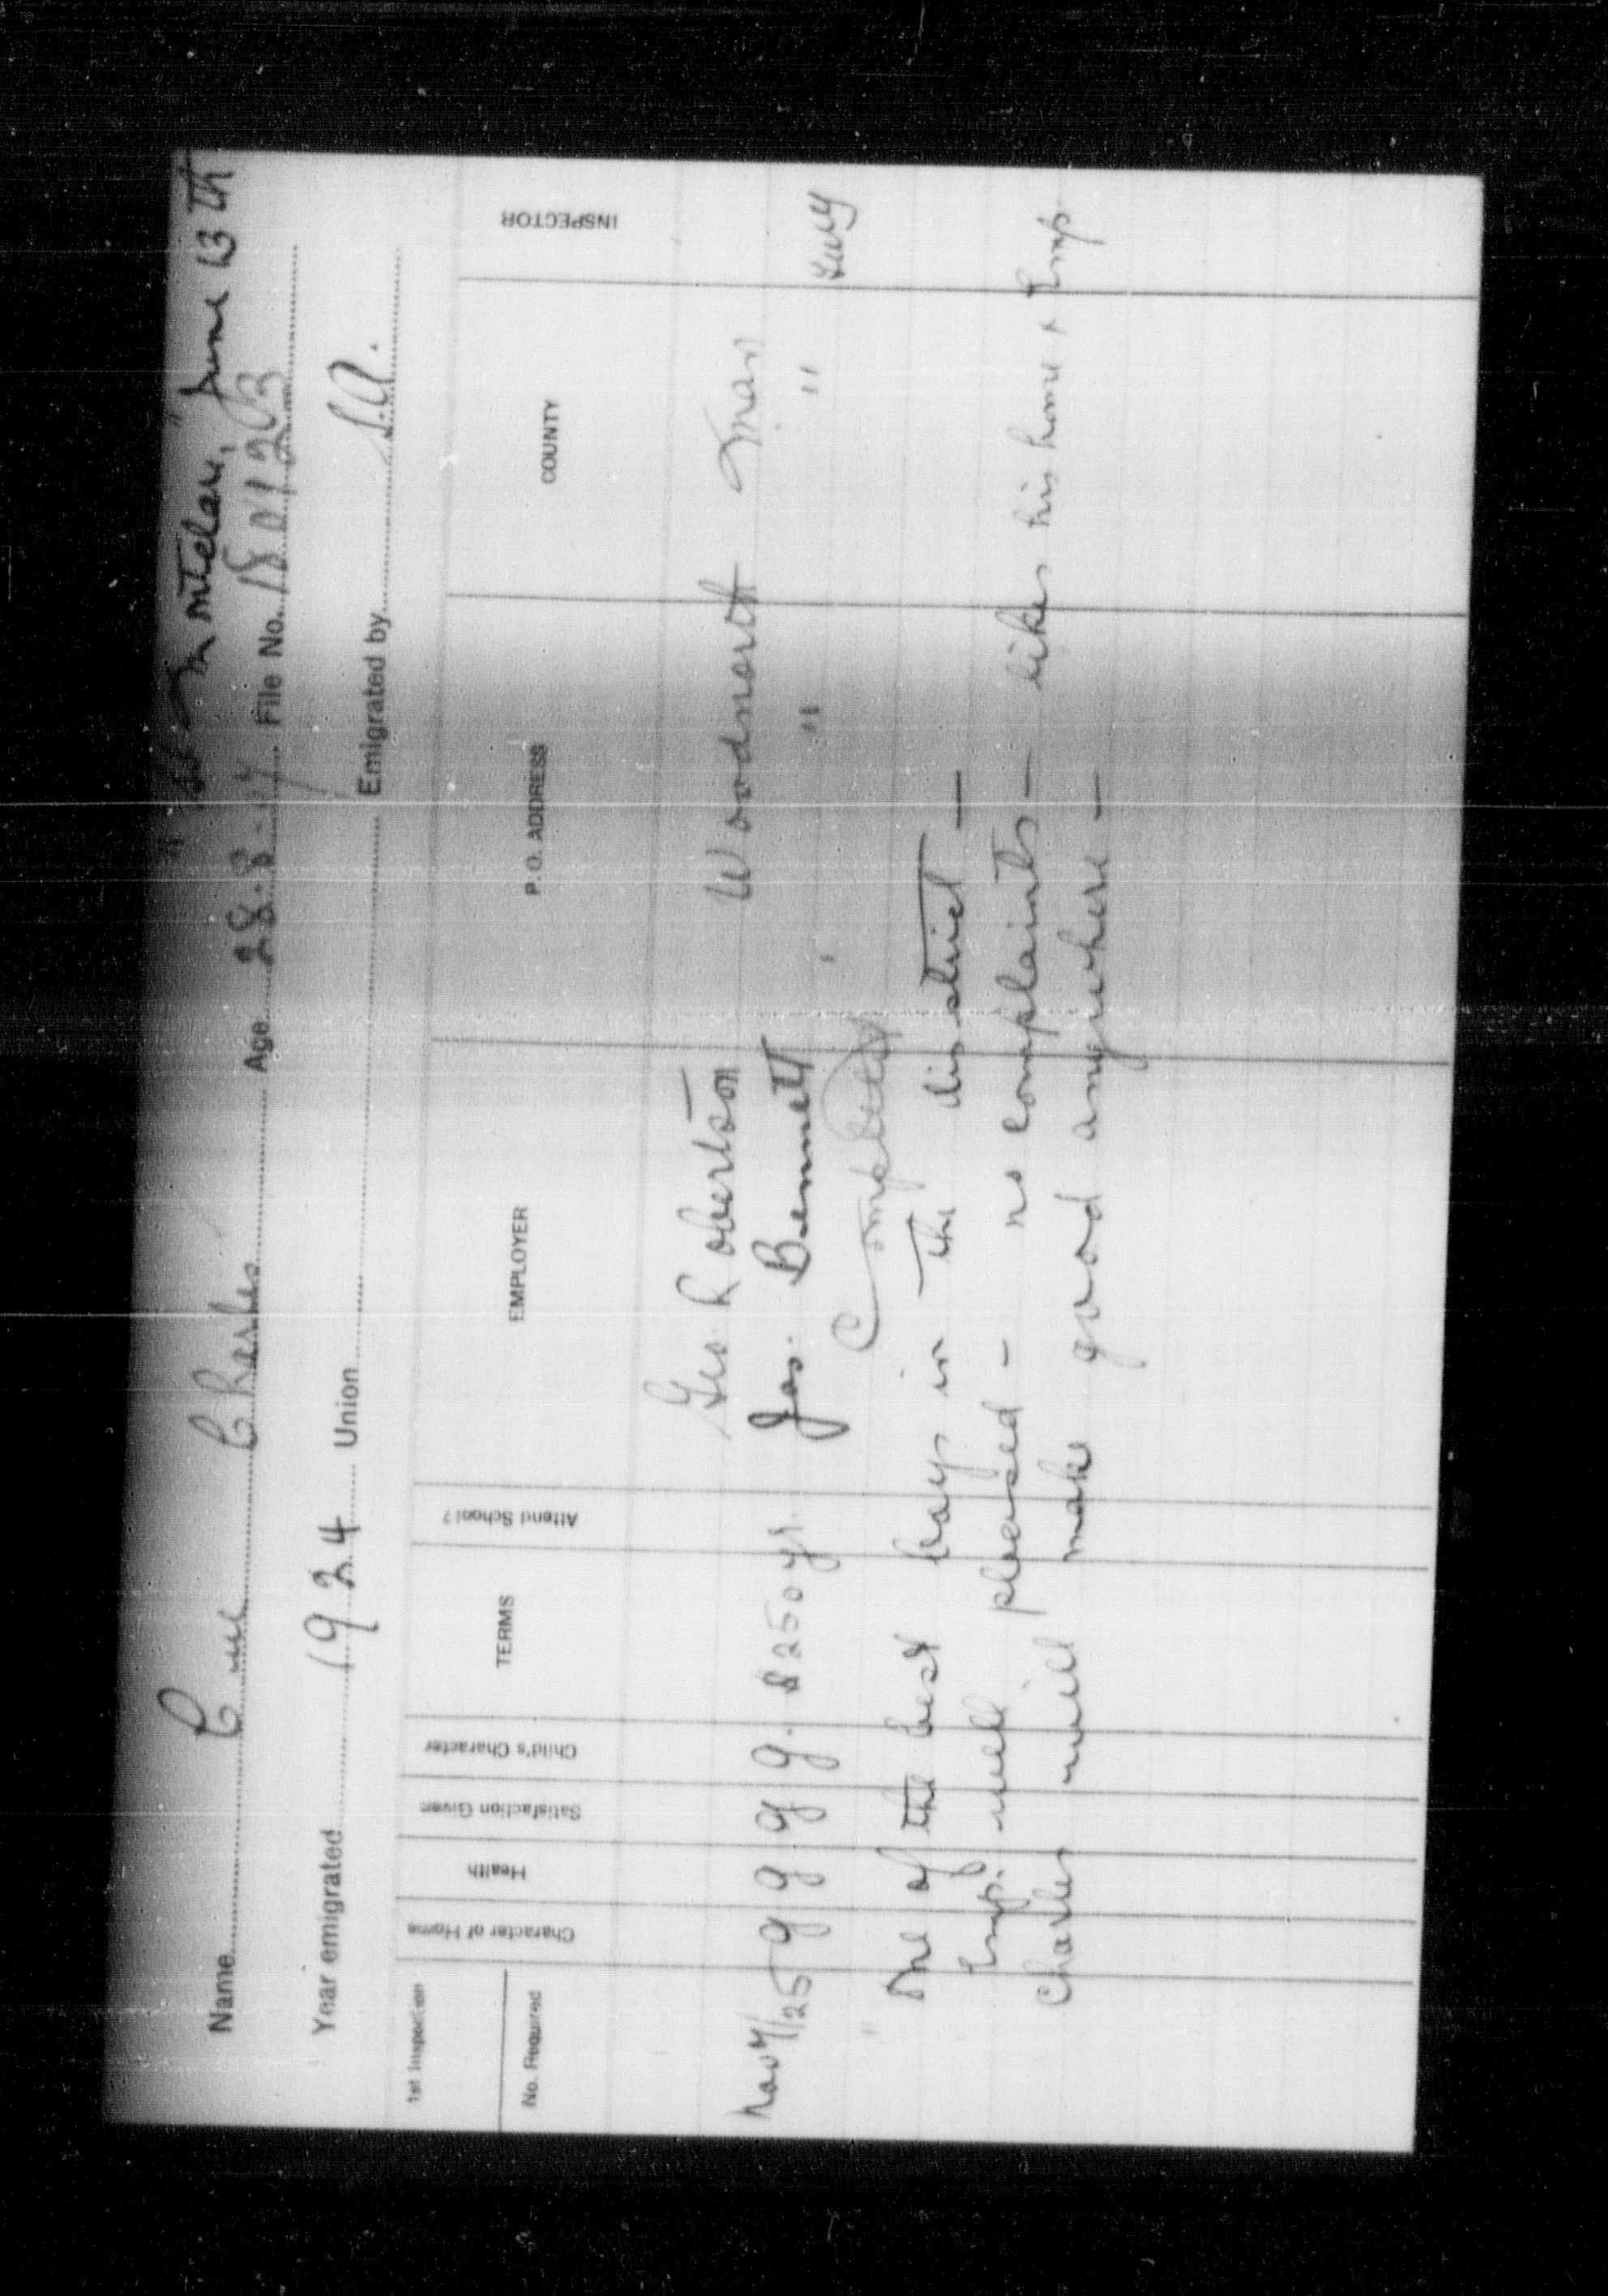 "SS Montclare," June 13th
Name Cue Charles Age 28-8-7 File No.
Year emigrated 1924 Union Emigrated by S.A.
1st Inspection
No. Required
Character of Home
Health
Satisfaction Given
Child's Character
TERMS
Attend School?
EMPLOYER
P. O. ADDRESS
COUNTY
INSPECTOR
Geo. Robertson Woodnorth Man
Nov 7/25 g g g g. $250 yr. Jas. Bennett " "
Completed
One of the best boys in the district —
Emp. well pleased - no complaints - likes his home & Emp.
Charles will make good anywhere —